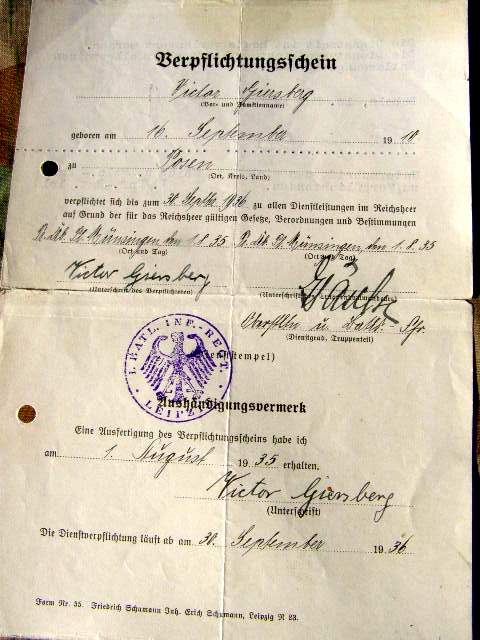 Verpflichtungsschein
Victor Giersberg
(Vor- und Familienname)
geboren am 16. September 19 10
zu Posen
(Ort, Kreis, Land)
verpflichtet sich bis zum 30. Septbr. 1936 zu allen Dienstleistungen im Reichsheer
auf Grund der für das Reichsheer gültigen Gesetze, Verordnungen und Bestimmungen
Münsingen, den 1.8.35 Münsingen, den 1.8.35
(Ort und Tag) (Ort und Tag)
Victor Giersberg
(Unterschrift des Verpflichteten) (Unterschrift des
Oberstltn u. Batls. Fhr.
(Dienstgrad, Truppenteil)
(Dienststempel)
I. BATL. INF.-REGT. LEIPZIG
Aushändigungsvermerk
Eine Ausfertigung des Verpflichtungsscheins habe ich
am 1. August 19 35 erhalten.
Victor Giersberg
(Unterschrift)
Die Dienstverpflichtung läuft ab am 30. September 19 36
Form Nr. 55. Friedrich Schumann Inh. Erich Schumann, Leipzig N 23.